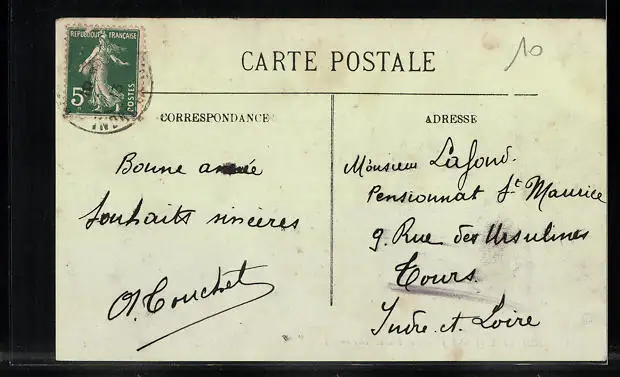 REPUBLIQUE FRANÇAISE
5c
POSTES
10
CARTE POSTALE
CORRESPONDANCE
Bonne année
Souhaits sincères
A. Touchet
ADRESSE
Monsieur Lafond.
Pensionnat St Maurice
9. Rue des Ursulines
Tours.
Indre. et. Loire